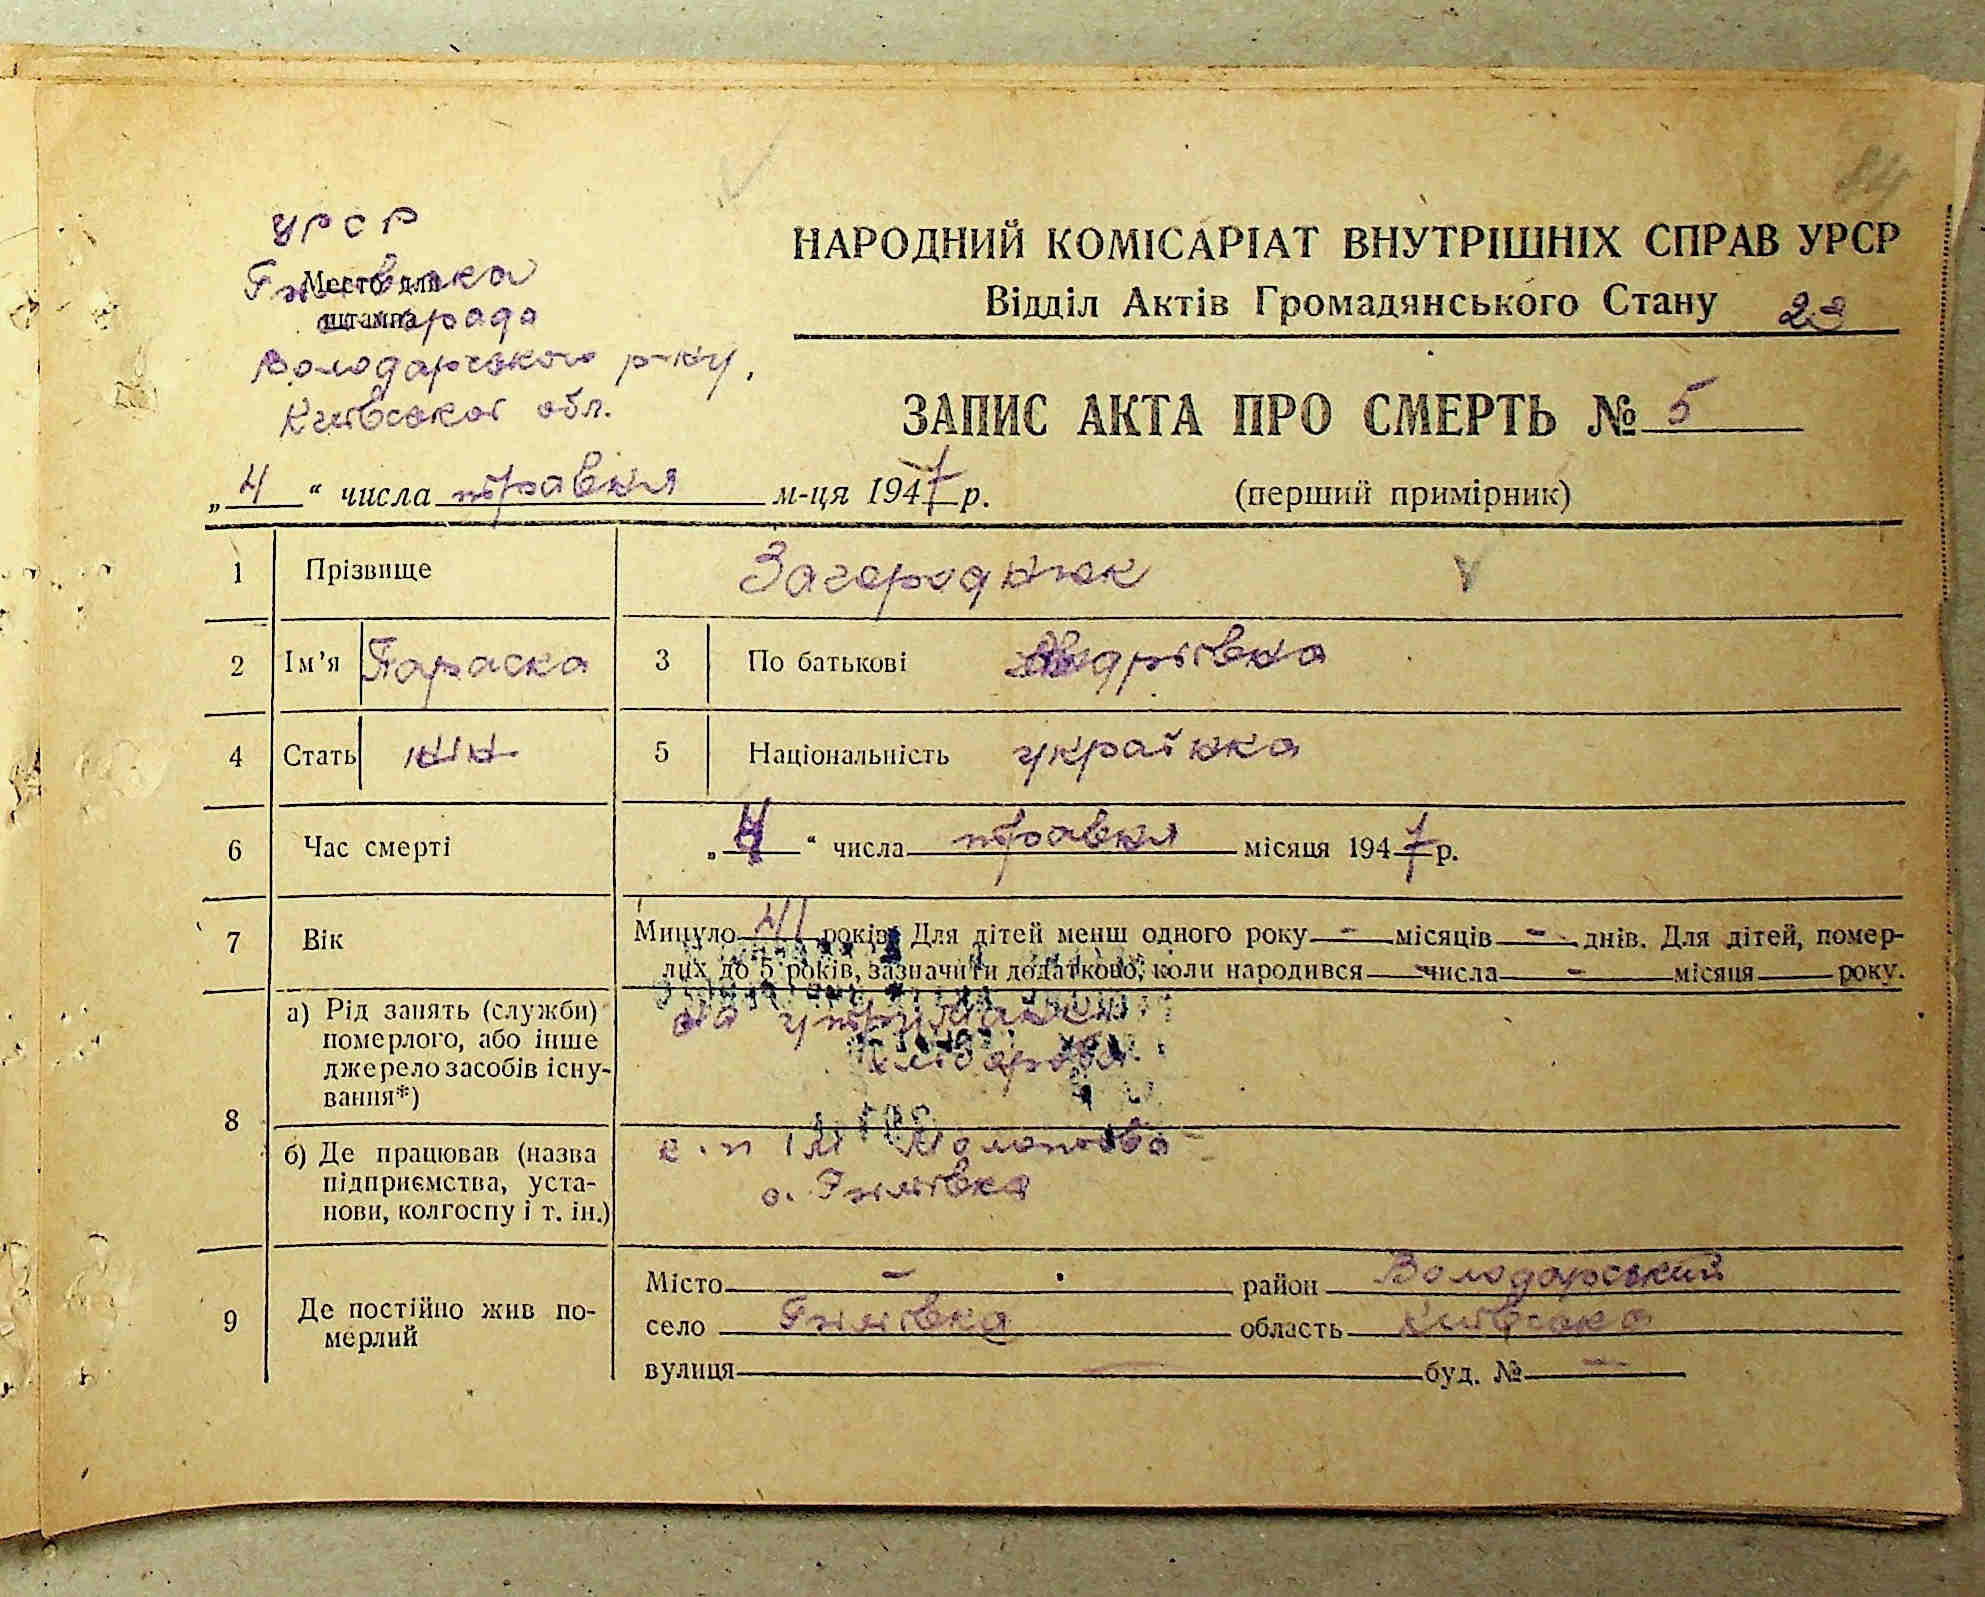 84
УРСР
Место для
штампа
сільрада
Володарського р-ну,
Київської обл.
НАРОДНИЙ КОМІСАРІАТ ВНУТРІШНІХ СПРАВ УРСР
Відділ Актів Громадянського Стану 23
ЗАПИС АКТА ПРО СМЕРТЬ № 5
„4“ числа травня м-ця 1947 р.
(перший примірник)
1 Прізвище Загороднюк
2 Ім’я Параска 3 По батькові Андріївна
4 Стать жін 5 Національність українка
6 Час смерті „4“ числа травня місяця 1947 р.
7 Вік Минуло 41 років. Для дітей менш одного року - місяців - днів. Для дітей, помер-
лих до 5 років, зазначити додатково, коли народився - числа - місяця року.
8 а) Рід занять (служби)
померлого, або інше
джерело засобів існу-
вання*)
на утриманні
б) Де працював (назва
підприємства, уста-
нови, колгоспу і т. ін.)
к-п ім Молотова
с. Гнилівка
9 Де постійно жив по-
мерлий
Місто - район Володарський
село область Київська
вулиця - буд. № -